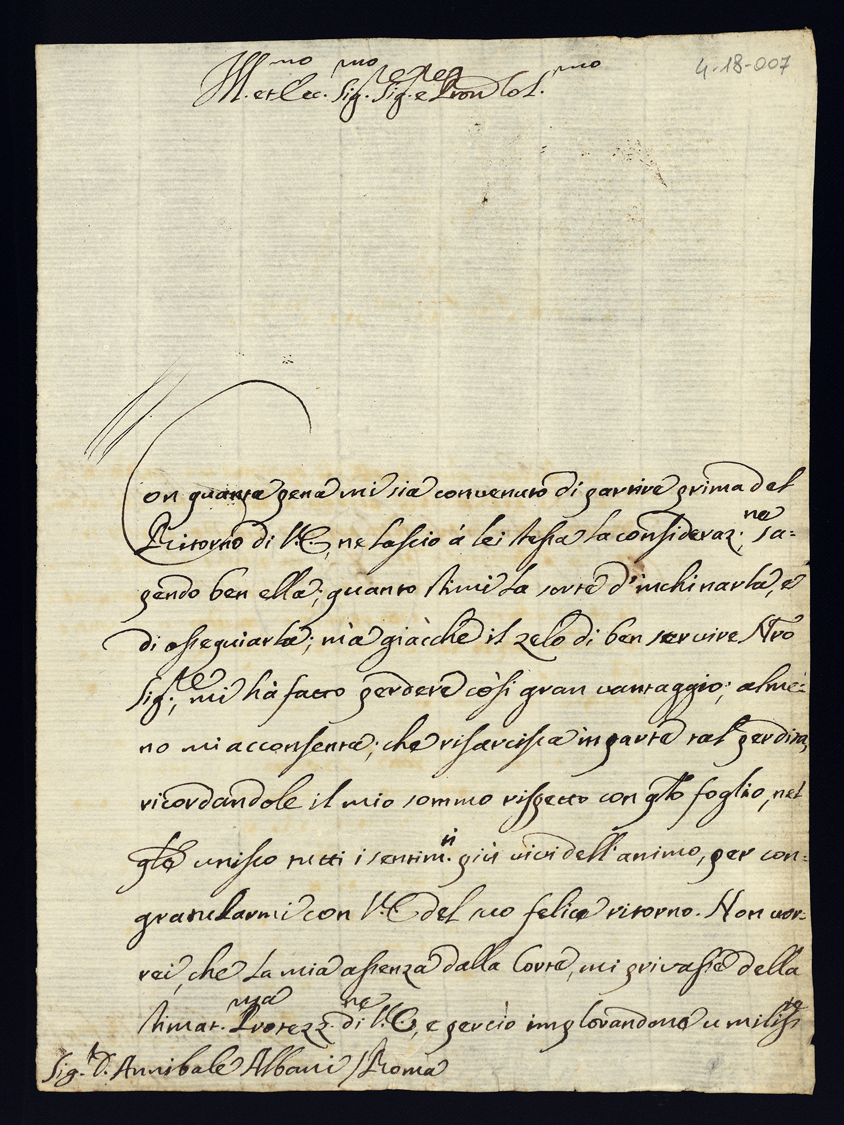 4-18-007
Ill.mo et Ecc.mo Sig.re Sig.re e Pron Col.mo
Con quanta pena mi sia convenuto di partire prima del
Ritorno di V.E., ne lascio à lei stessa la consideraz.ne; sa-
pendo ben ella; quanto stimi la sorte d'inchinarla, e
di ossequiarla; mà giàcche il zelo di ben servire Nrô
Sig.re, mi hà fatto perdere còsi gran vantaggio; alme-
no mi acconsenta; che risarcisca in parte tal perdita,
ricordandole il mio sommo rispetto con qto foglio, nel
qle unisco tutti i sentim.ti più vivi dell'animo, per con-
gratularmi con V.E. del suo felice ritorno. Non vor-
rei, che la mia assenza dalla Corte, mi privasse della
stimat.ma Protezz.ne di V.E., e perciò implorandone umiliss.te
Sig.r D. Annibale Albani / Roma